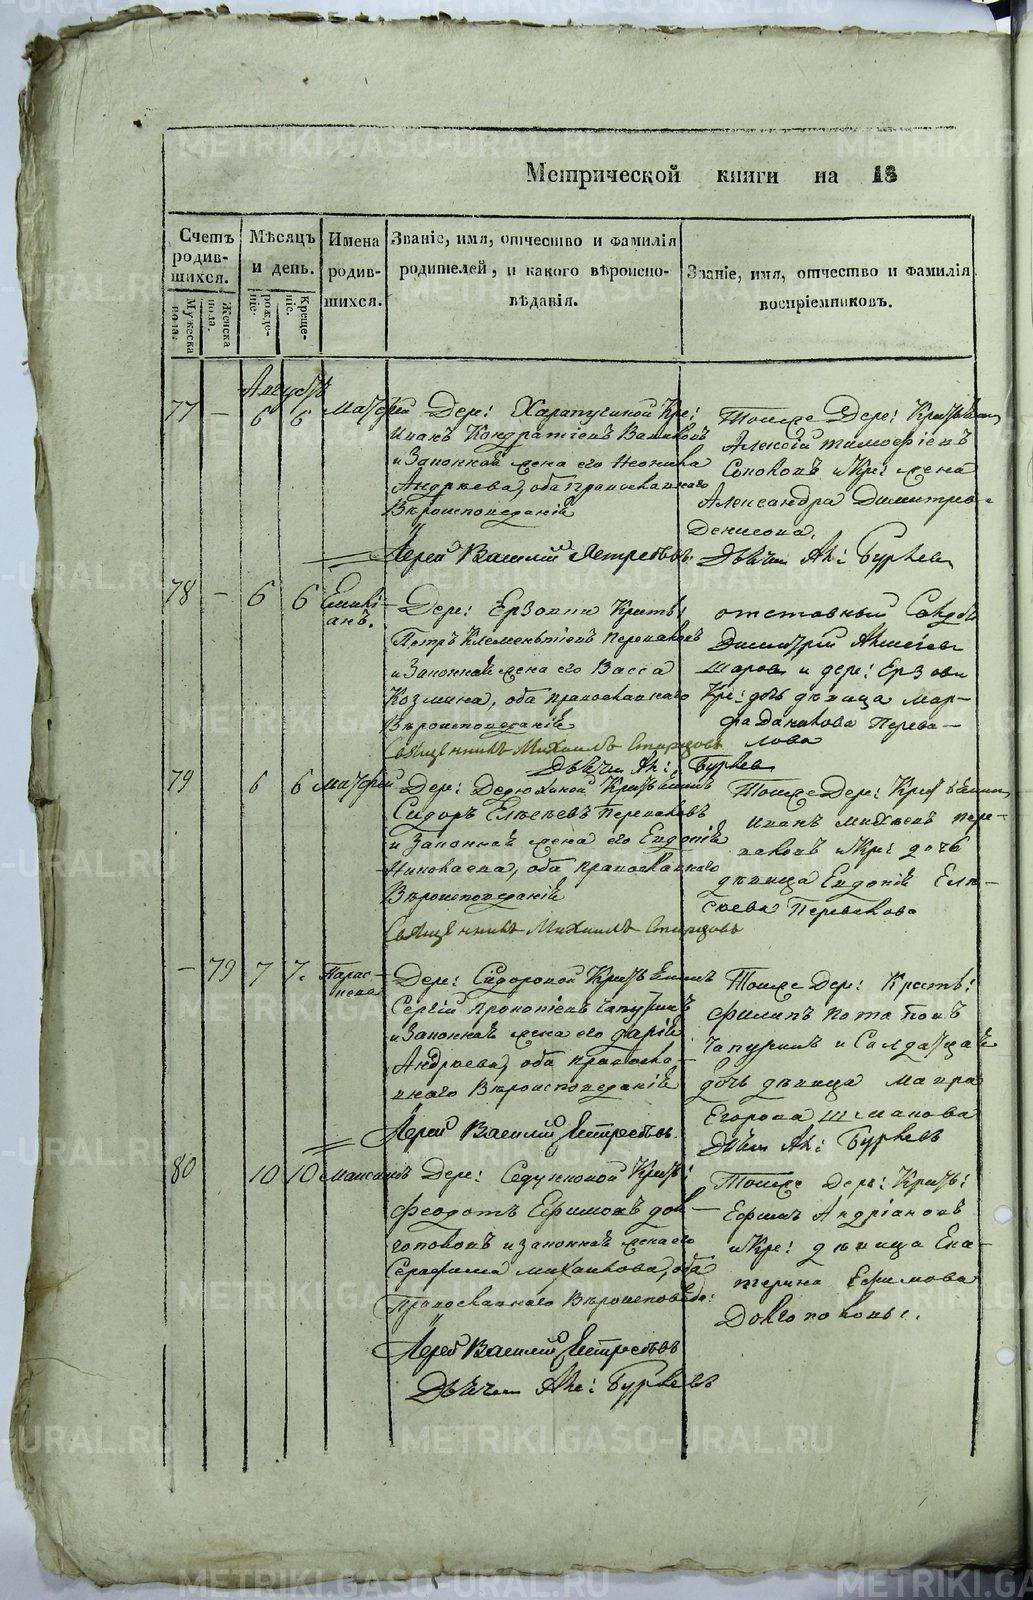 Метрической книги на 18
Счетъ родившихся.
Мужеска пола.
Женска пола.
Мѣсяцъ и день.
рожденіе.
крещеніе.
Имена родившихся.
Званіе, имя, отчество и фамилія родителей, и какого вѣроисповѣданія.
Званіе, имя, отчество и фамилія воспріемниковъ.
Августъ
77 — 6 6 Матфей
Дер: Кре:
Иванъ Кондратіевъ
и Законная жена его Неонила
Андреева, оба православнаго
Вѣроисповеданія
Іерей Василій Ястребовъ.
Тойже Дер: Крестьянинъ
Алексій Тимофіевъ
и Кре: жена
Александра Димитрева
Денисова.
Дьячекъ Ак: Бурлевъ
78 — 6 6 Емиліанъ.
Дер: Ерзовки Крест:
Петръ Клементіевъ Переваловъ
и Законная жена его Васса
Козмина, оба православнаго
Вѣроисповеданія
Священникъ Михаилъ Старцовъ
отставный Солдатъ
Димитрій Алексіевъ
Шаровъ и дер: Ерзовки
Кре: дочь дѣвица Марфа
Данилова Перевалова
Дьячекъ Ак: Бурлевъ
79 6 6 Матфей
Дер: Дедюхиной Крестьянинъ
Сидоръ Елисеевъ Переваловъ
и Законная жена его Евдокія
Николаева, оба православнаго
Вѣроисповеданія
Священникъ Михаилъ Старцовъ
Тойже Дер: Крестьянинъ
Иванъ Михеевъ Переваловъ
и Кре: дочь
дѣвица Евдокія Елисеева
Перевалова
— 79 7 7. Парасковья
Дер: Сидоровой Крестьянинъ
Сергій Прокопіевъ Чапуринъ
и Законная жена его Дарія
Андреева, оба православнаго
Вѣроисповеданія
Іерей Василій Ястребовъ.
Тойже Дер: Крестъ:
Филипъ Потаповъ
Чапуринъ и Салдатская
дочь дѣвица Мавра
Егорова Шлманова
Дьячекъ Ак: Бурлевъ
80 10 10
Дер: Седунковой Крест:
Феодотъ Ефимовъ Долгополовъ
и законная жена его
Серафима Михаилова, оба
Православнаго Вѣроисповеда:
Іерей Василій Ястребовъ
Дьячекъ Ак: Бурлевъ
Тойже Дер: Крест:
Ефимъ Андріановъ
и Кре: дѣвица Екатерина
Ефимова
Долгополовы.
METRIKI.GASO-URAL.RU